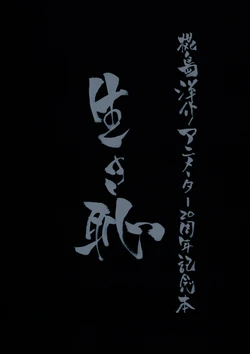 椛島洋介アニメーター20周年記念本
生き恥